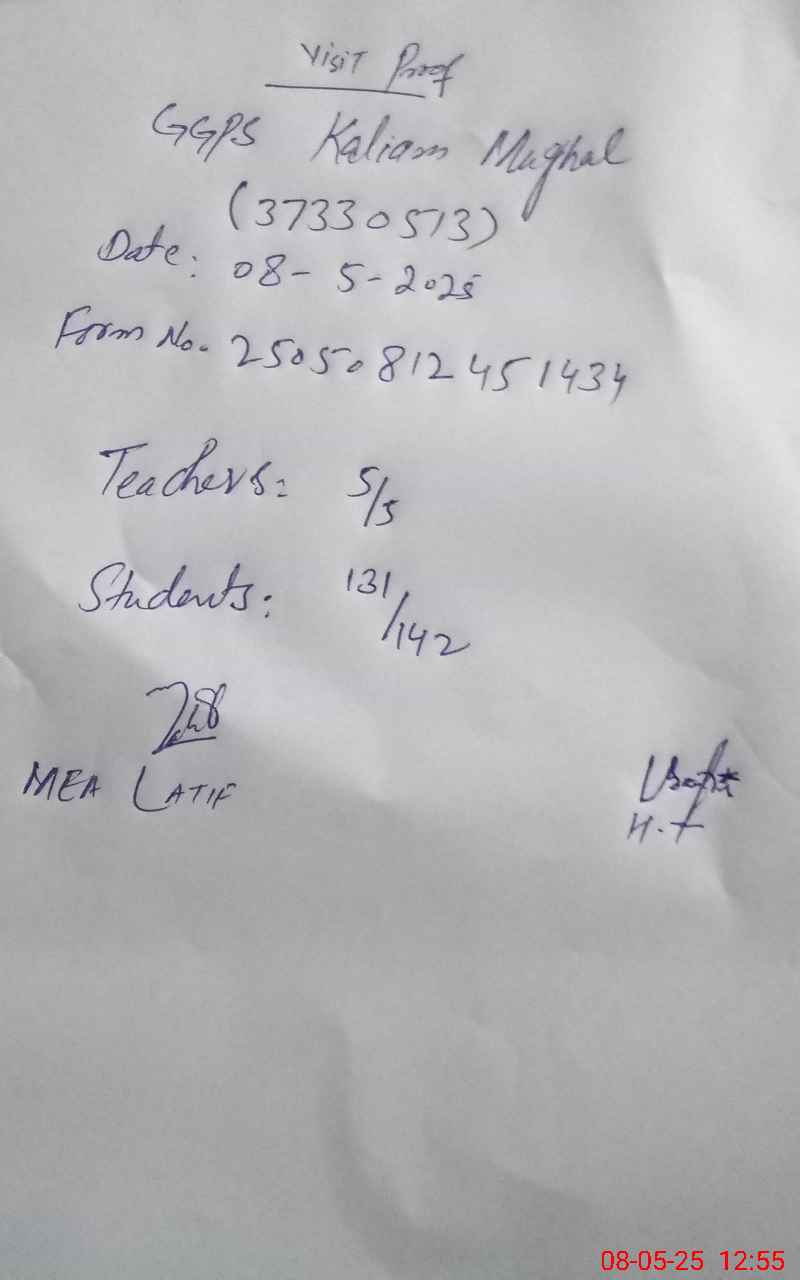 Visit Proof
GGPS Kaliam Mughal
(37330513)
Date: 08-5-2025
Form No. 25050812451434
Teachers: 5/5
Students: 131/142
MEA LATIF
H.T
08-05-25 12:55